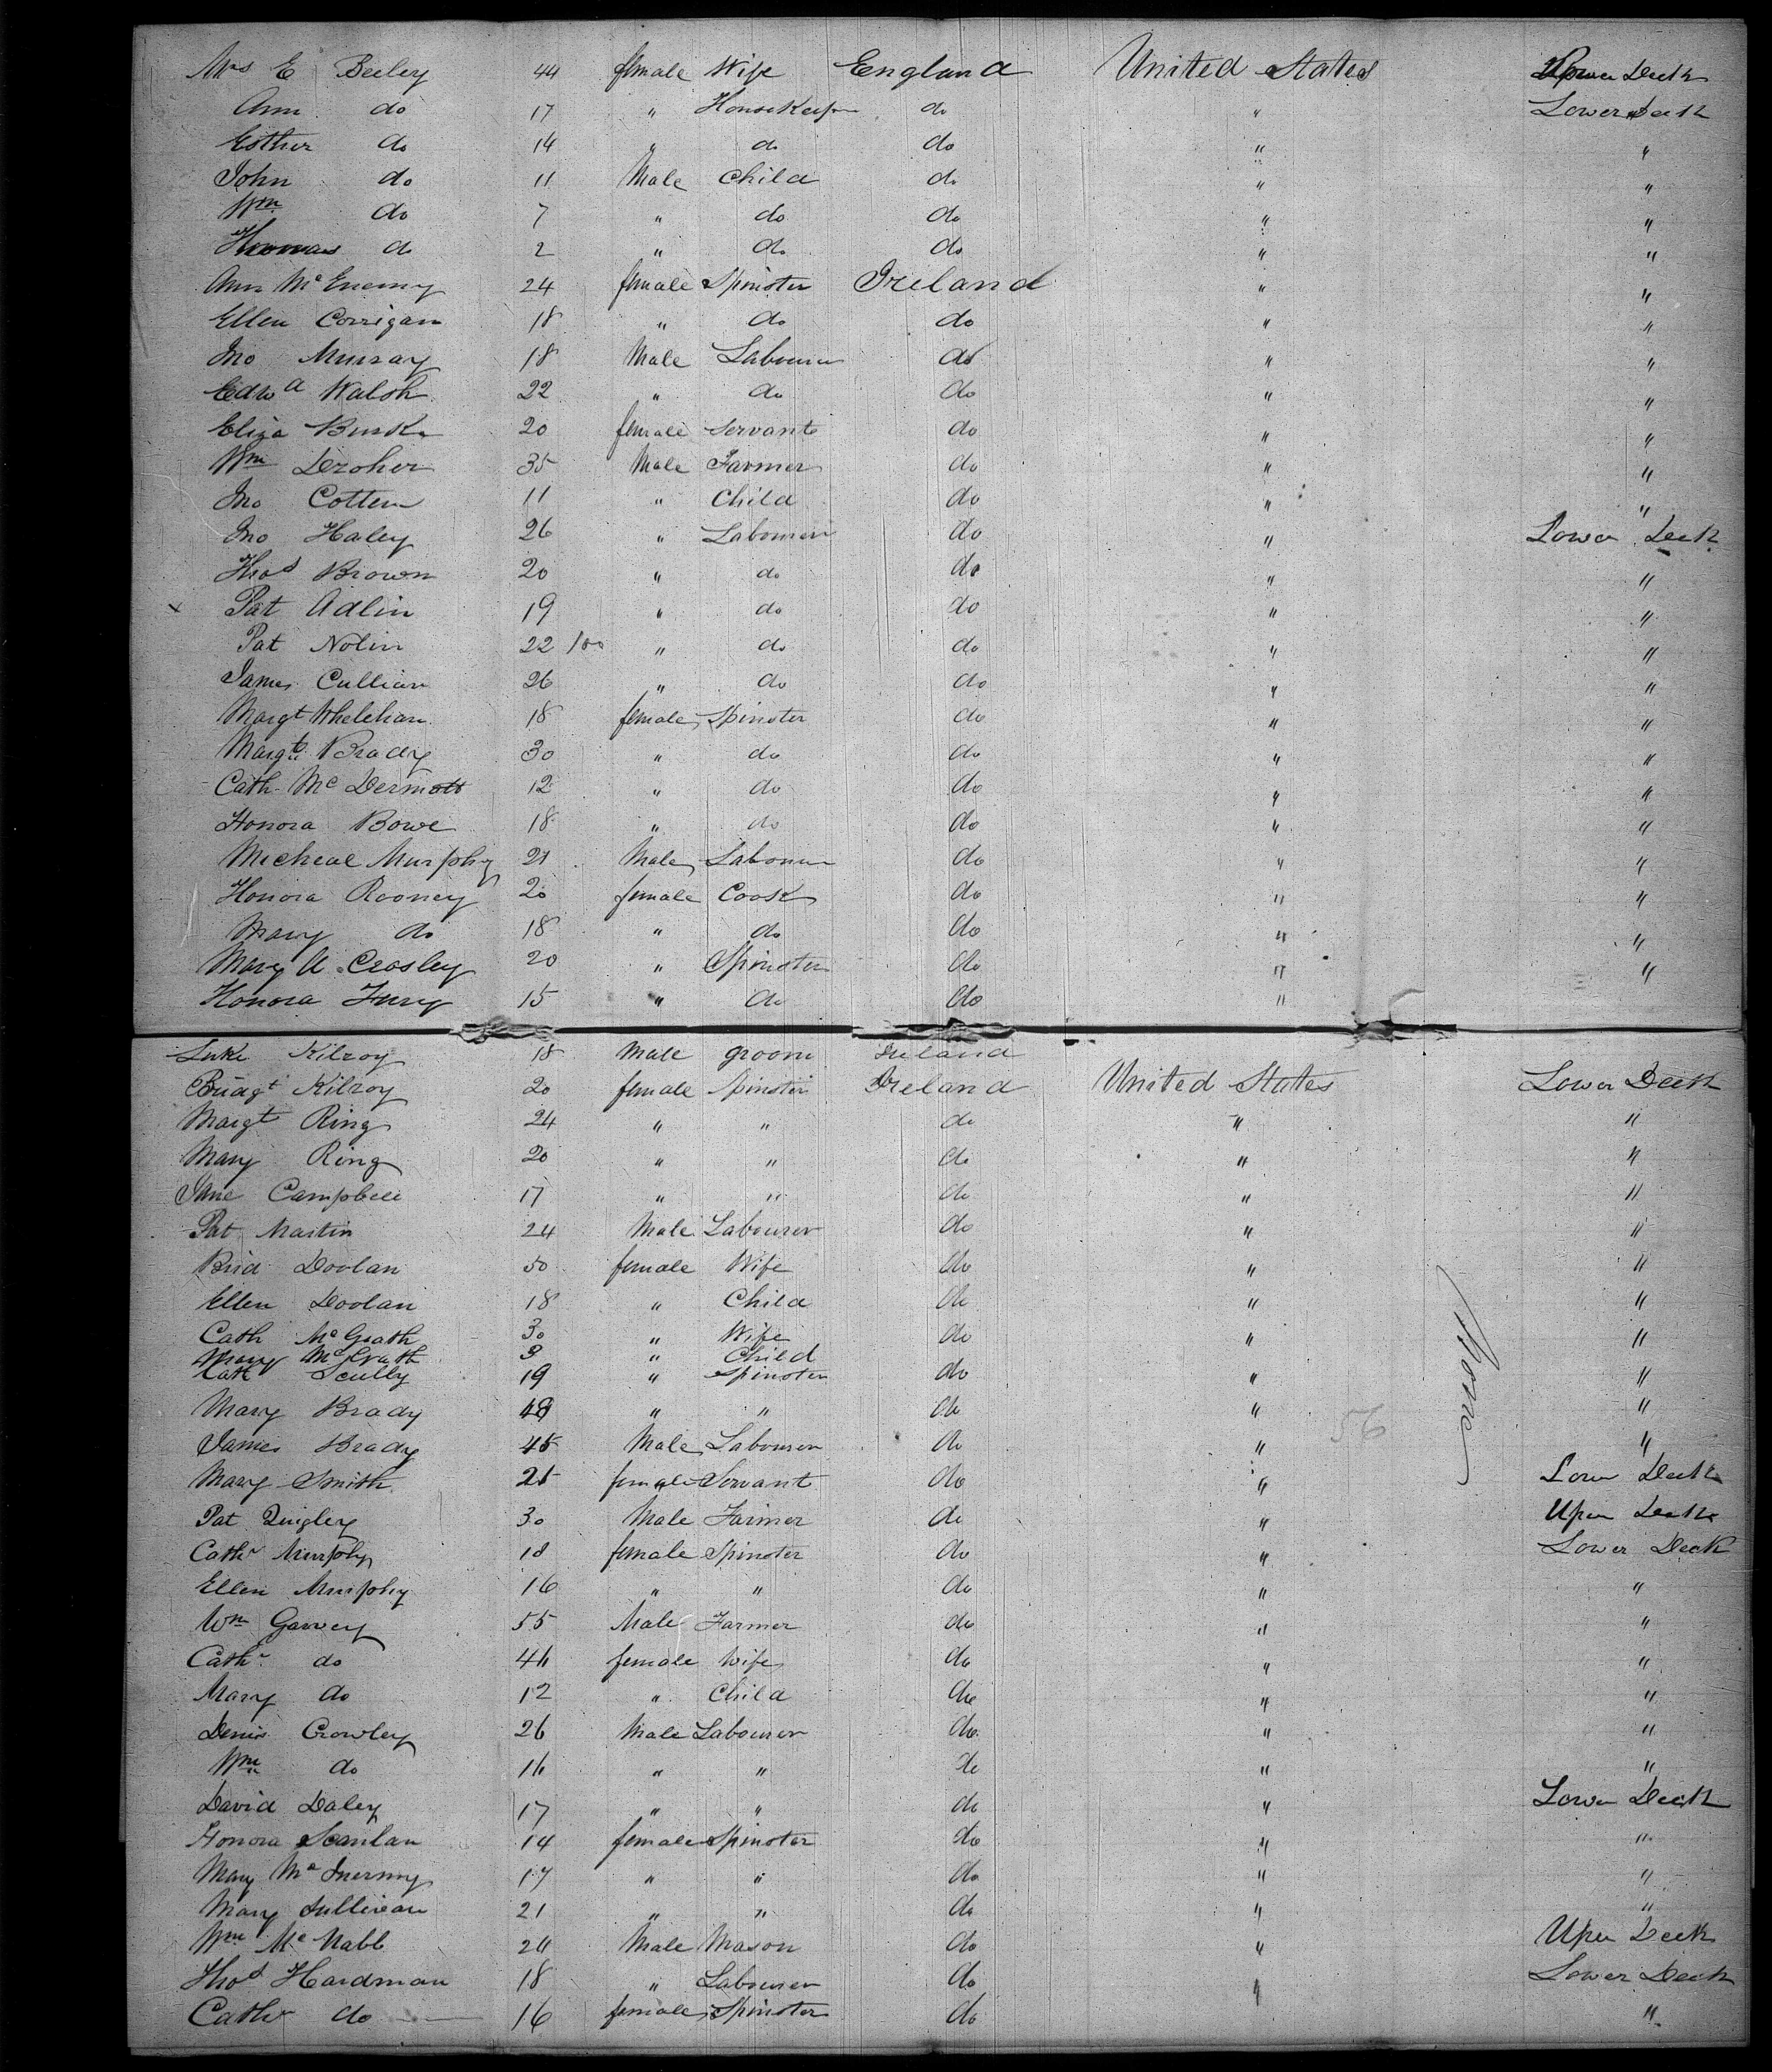 Mrs E Beeley 44 female Wife England United States Upper Deck
Ann do 17 " Housekeeper do " Lower Deck
Esther do 14 " do do " "
John do 11 Male Child do " "
Wm do 7 " do do " "
Thomas do 2 " do do " "
Ann McEnemy 24 female Spinster Ireland " "
Ellen Corrigan 18 " do do " "
Jno Murray 18 Male Labourer do " "
Edwd Walsh 22 " do do " "
Eliza Burke 20 female Servant do " "
Wm Dezoher 35 Male Farmer do " "
Jno Cotten 11 " Child do " "
Jno Haley 26 " Labourer do " Lower Deck
Thos Brown 20 " do do " "
x Pat Adlin 19 " do do " "
Pat Nolin 22 100 " do do " "
James Cullian 26 " do do " "
Margt Whelehan 18 female Spinster do " "
Margt Brady 30 " do do " "
Cath McDermott 12 " do do " "
Honora Bowe 18 " do do " "
Micheal Murphy 21 Male Labourer do " "
Honora Rooney 20 female Cook do " "
Mary do 18 " do do " "
Mary A Crosley 20 " Spinster do " "
Honora Fury 15 " do do "
Luke Kilroy 18 Male groom Ireland
Bridgt Kilroy 20 female Spinster Ireland United States Lower Deck
Margt Ring 24 " " do " "
Mary Ring 20 " " do " "
Jane Campbell 17 " " do " "
Pat Martin 24 Male Labourer do " "
Brid Doolan 50 female Wife do " "
Ellen Doolan 18 " Child do " "
Cath McGrath 30 " Wife do " "
Mary McGrath 3 " Child
Cath Scully 19 " Spinster do " "
Mary Brady 48 " " do " "
James Brady 45 Male Labourer do " "
56
None
Mary Smith 25 female Servant do " Lower Deck
Pat Quigley 30 Male Farmer do " Upper Deck
Cathr Murphy 18 female Spinster do " Lower Deck
Ellen Murphy 16 " " do " "
Wm Garvey 55 Male Farmer do " "
Cathr do 46 female Wife do " "
Mary do 12 " Child do " "
Denis Crowley 26 Male Labourer do " "
Wm do 16 " " do " "
David Daley 17 " " do " Lower Deck
Honora Scanlan 14 female Spinster do " "
Mary McInerny 17 " " do " "
Mary Sullivan 21 " " do " "
Wm McNabb 24 Male Mason do " Upper Deck
Thos Hardman 18 " Labourer do " Lower Deck
Cathr do 16 female Spinster do "